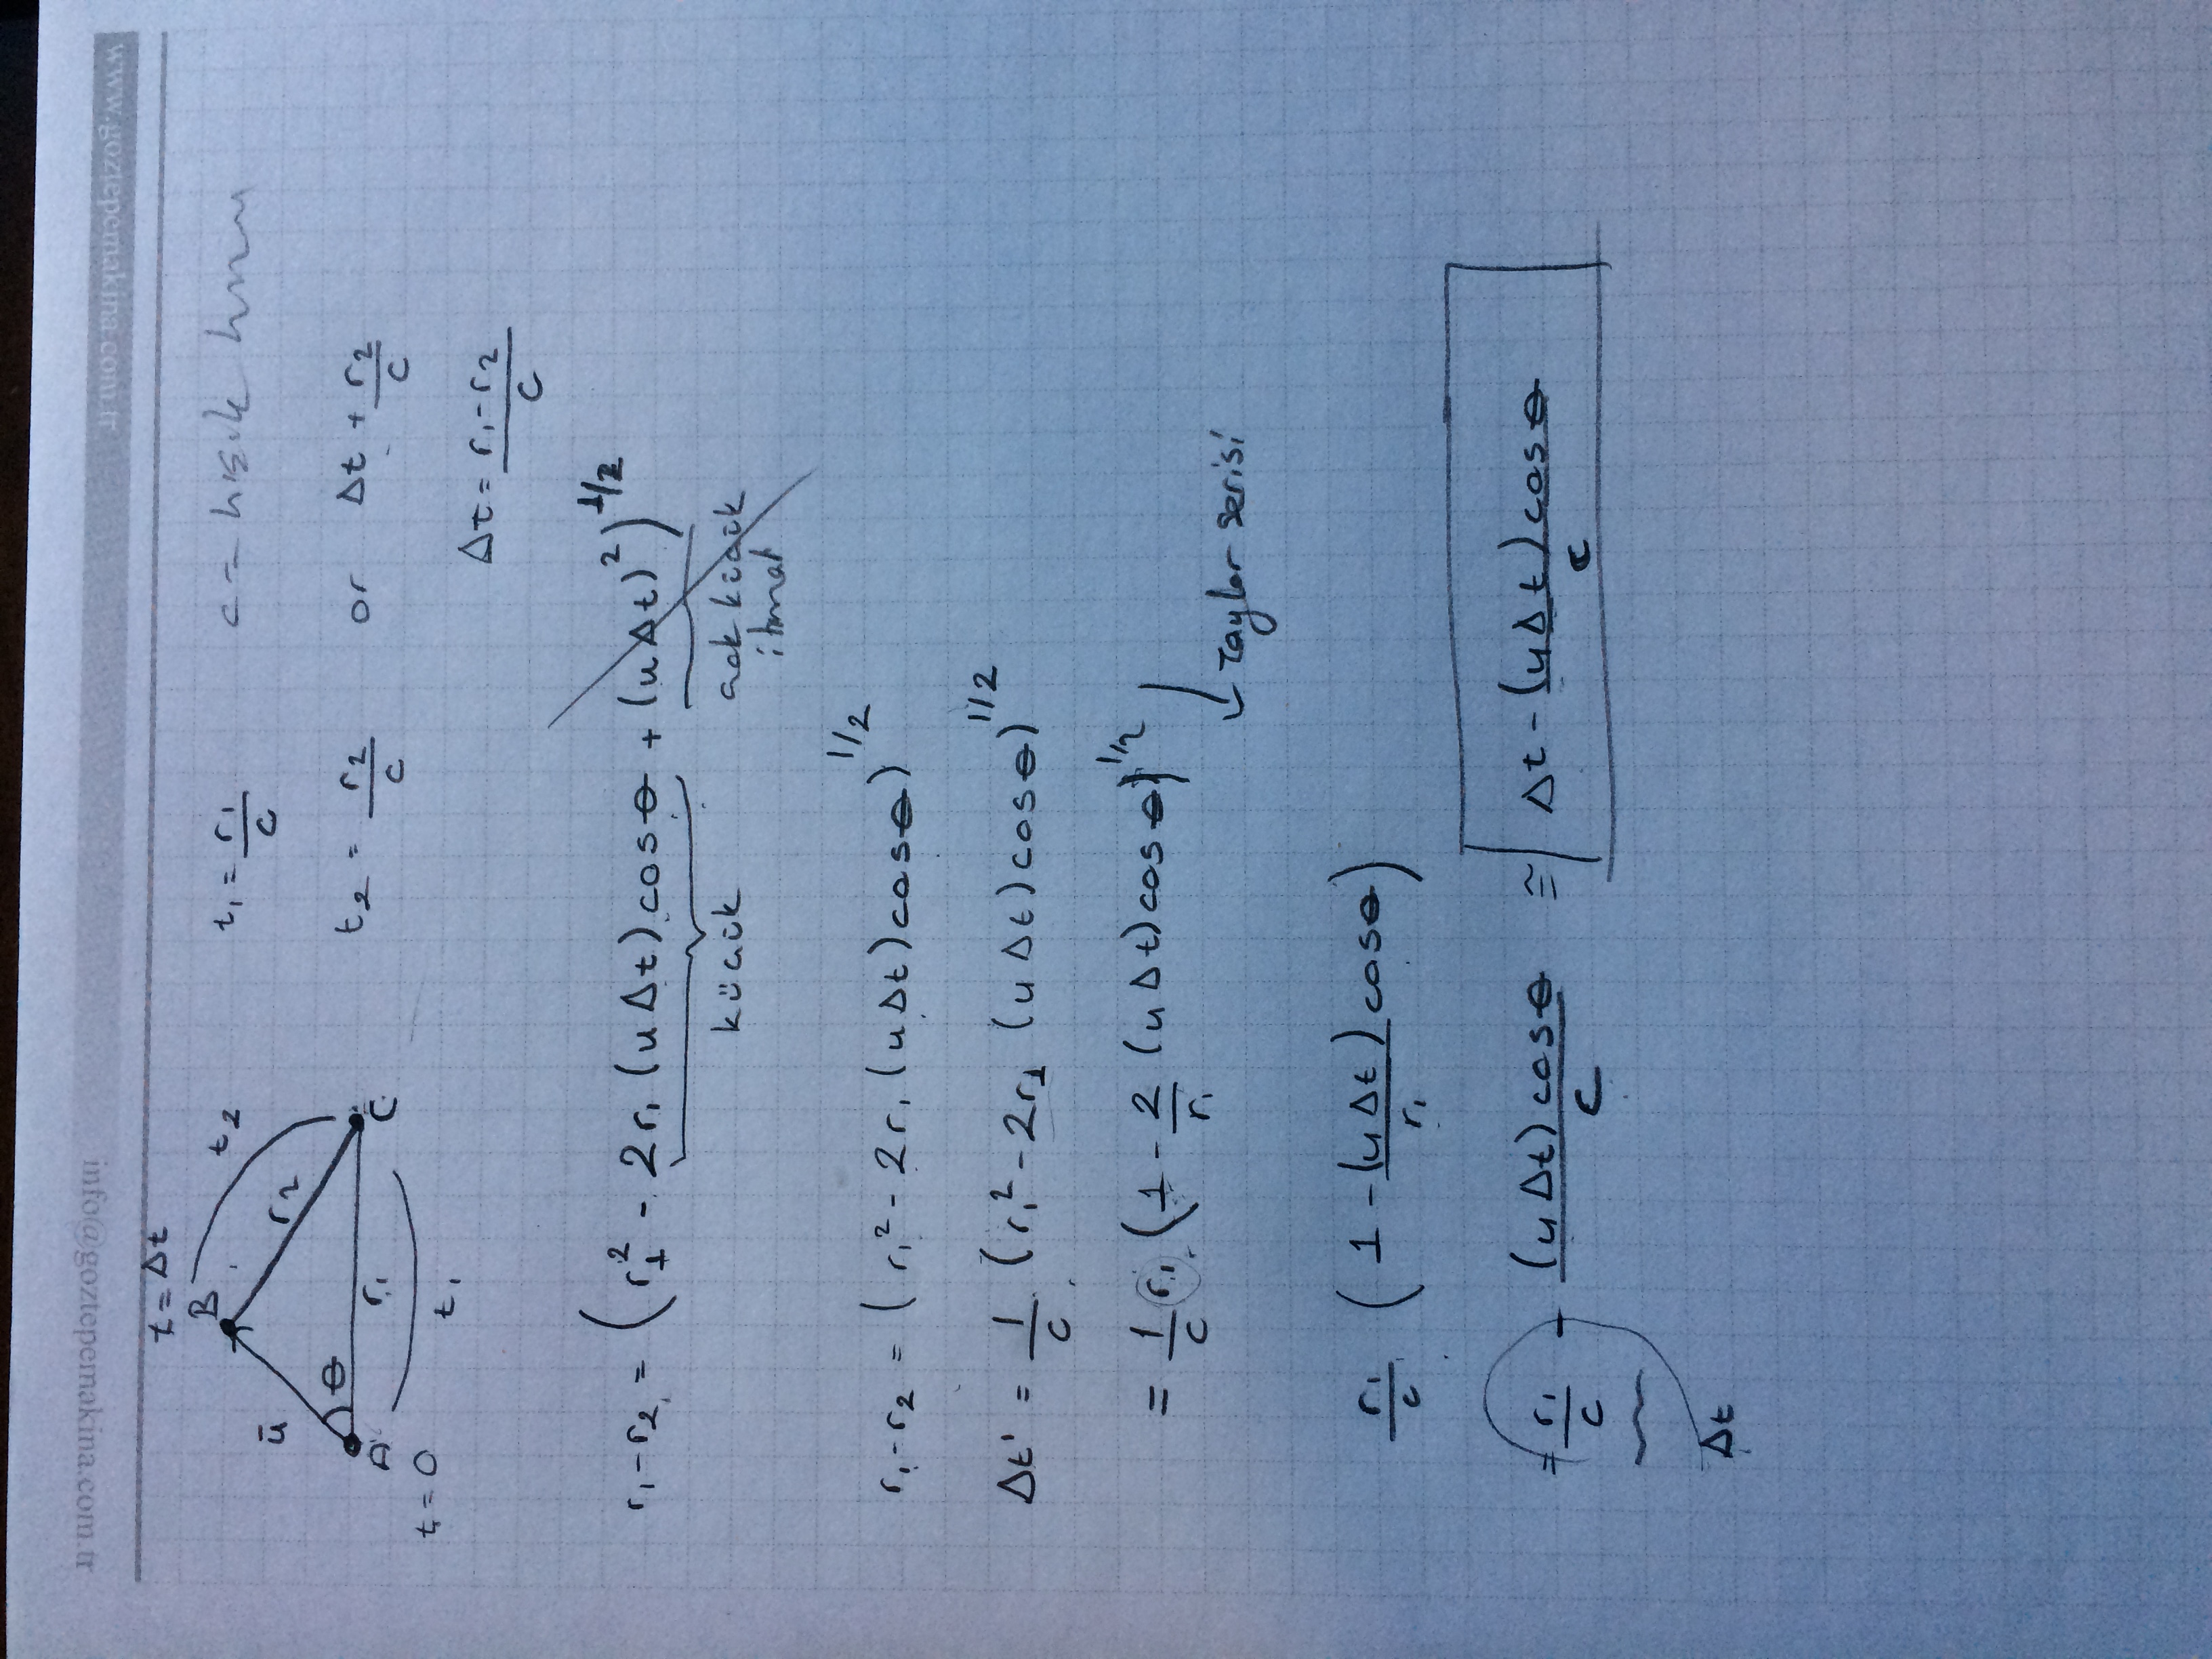 www.goztepemakina.com.tr
info@goztepemakina.com.tr
t = Δt
B
t₂
ū
r₂
θ
A
r₁
C
t = 0
t₁
t₁ = r₁/c
t₂ = r₂/c or Δt + r₂/c
Δt = r₁-r₂/c
r₁-r₂ = (r₁² - 2r₁(uΔt)cosθ + (uΔt)²)^1/2
küçük
çok küçük
r₁-r₂ = (r₁² - 2r₁(uΔt)cosθ)^1/2
Δt' = 1/c (r₁² - 2r₁(uΔt)cosθ)^1/2
= 1/c r₁ (1 - 2/r₁ (uΔt)cosθ)^1/2
Taylor serisi
r₁/c (1 - (uΔt)/r₁ cosθ)
= r₁/c - (uΔt)cosθ/c ≅ Δt - (uΔt)cosθ/c
Δt